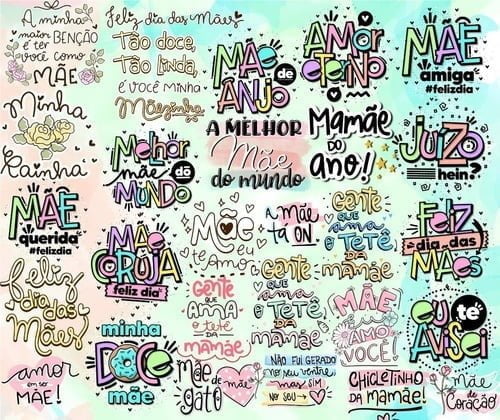 A minha
maior BENÇÃO
é ter
você como
MÃE
Feliz dia das Mães
Tão doce,
Tão linda,
é você minha
Mãezinha
MÃE
de
ANJO
AMOR
eterno
MÃE
amiga
#felizdia
Minha
Rainha
Melhor
mãe do
MUNDO
A MELHOR
Mãe
do mundo
Mamãe
DO
ano!
JUÍZO
hein?
MÃE
querida
#felizdia
MÃE
CORUJA
feliz dia
Mãe
eu
te Amo
a mãe
tá ON
Gente
QUE
ama
o TETÊ
DA
mamãe
FELIZ
dia das
MÃES
Feliz
dia das
Mães
Gente
QUE
AMA
o tetê
da
MAMÃE
Gente
QUE
ama
o TETÊ
DA
mamãe
MÃE
EU
AMO
VOCÊ!
eu te
AVISEI
amor
em ser
MÃE!
minha
DOCE
mãe
Mãe
de
gato
de mãe
NÃO FUI GERADO
no seu ventre
mas SIM
NO seu
CHICLETINHO
DA
mamãe!
Mãe
de
Coração